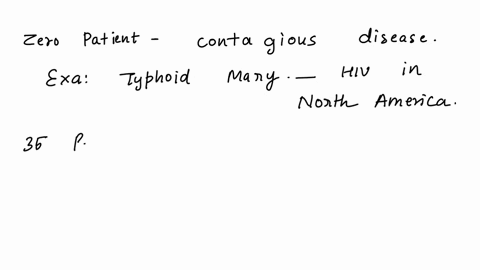 Zero Patient - contagious disease.
Exa: Typhoid Mary. — HIV in
North America.
36 P.